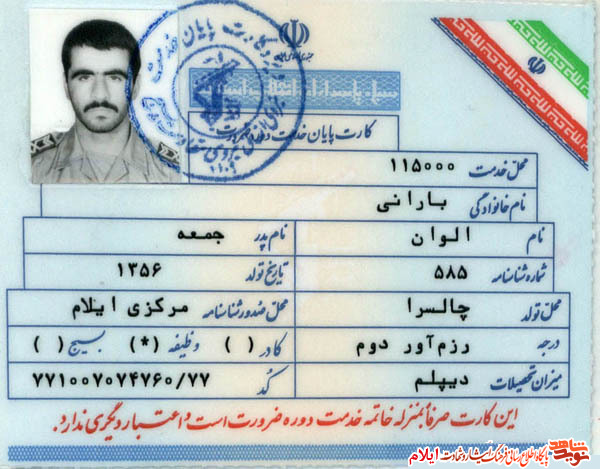 جمهوری اسلامی ایران
سپاه پاسداران انقلاب اسلامی
کارت پایان خدمت دوره ضرورت
محل خدمت ۱۱۵۰۰۰
نام خانوادگی بارانی
نام الوان نام پدر جمعه
شماره شناسنامه ۵۸۵ تاریخ تولد ۱۳۵۶
محل تولد چالسرا محل صدور شناسنامه مرکزی ایلام
درجه رزم‌آور دوم کادر ( ) وظیفه (*) بسیج ( )
میزان تحصیلات دیپلم کد ۷۷۱۰۰۷۰۷۴۷۶۰/۷۷
این کارت صرفاً بمنزله خاتمه خدمت دوره ضرورت است و اعتبار دیگری ندارد.
نوید شاهد
ایلام